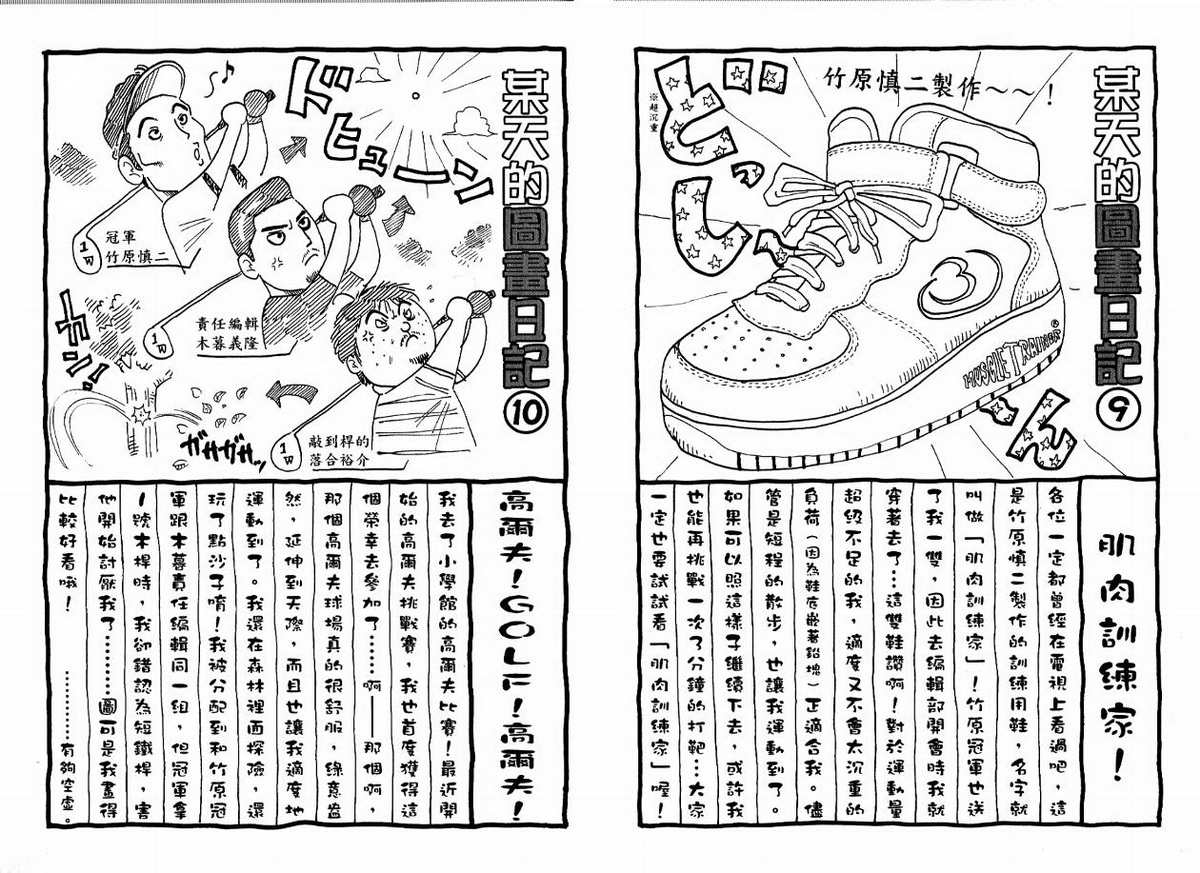 某天的圖畫日記⑨
竹原慎二製作～～！
※超沉重
ビロロビーン
3
MUSCLE TRAINER®
肌肉訓練家！
各位一定都曾經在電視上看過吧，這
是竹原慎二製作的訓練用鞋，名字就
叫做「肌肉訓練家」！竹原冠軍也送
了我一雙，因此去編輯部開會時我就
穿著去了…這雙鞋讚啊！對於運動量
超級不足的我，適度又不會太沉重的
負荷（因為鞋底嵌著鉛塊）正適合我。儘
管是短程的散步，也讓我運動到了。
如果可以照這樣子繼續下去，或許我
也能再挑戰一次3分鐘的打靶…大家
一定也要試試看「肌肉訓練家」喔！
某天的圖畫日記⑩
ドヒューン
♪
1W
冠軍
竹原慎二
1W
責任編輯
木暮義隆
ガン!!
ガサガサッ
1W
敲到桿的
落合裕介
高爾夫！GOLF！高爾夫！
我去了小學館的高爾夫比賽！最近開
始的高爾夫挑戰賽，我也首度獲得這
個榮幸去參加了……啊——那個啊，
那個高爾夫球場真的很舒服，綠意盎
然，延伸到天際，而且也讓我適度地
運動到了。我還在森林裡面探險，還
玩了點沙子唷！我被分配到和竹原冠
軍跟木暮責任編輯同一組，但冠軍拿
1號木桿時，我卻錯認為短鐵桿，害
他開始討厭我了…………圖可是我畫得
比較好看哦！　…………有夠空虛。